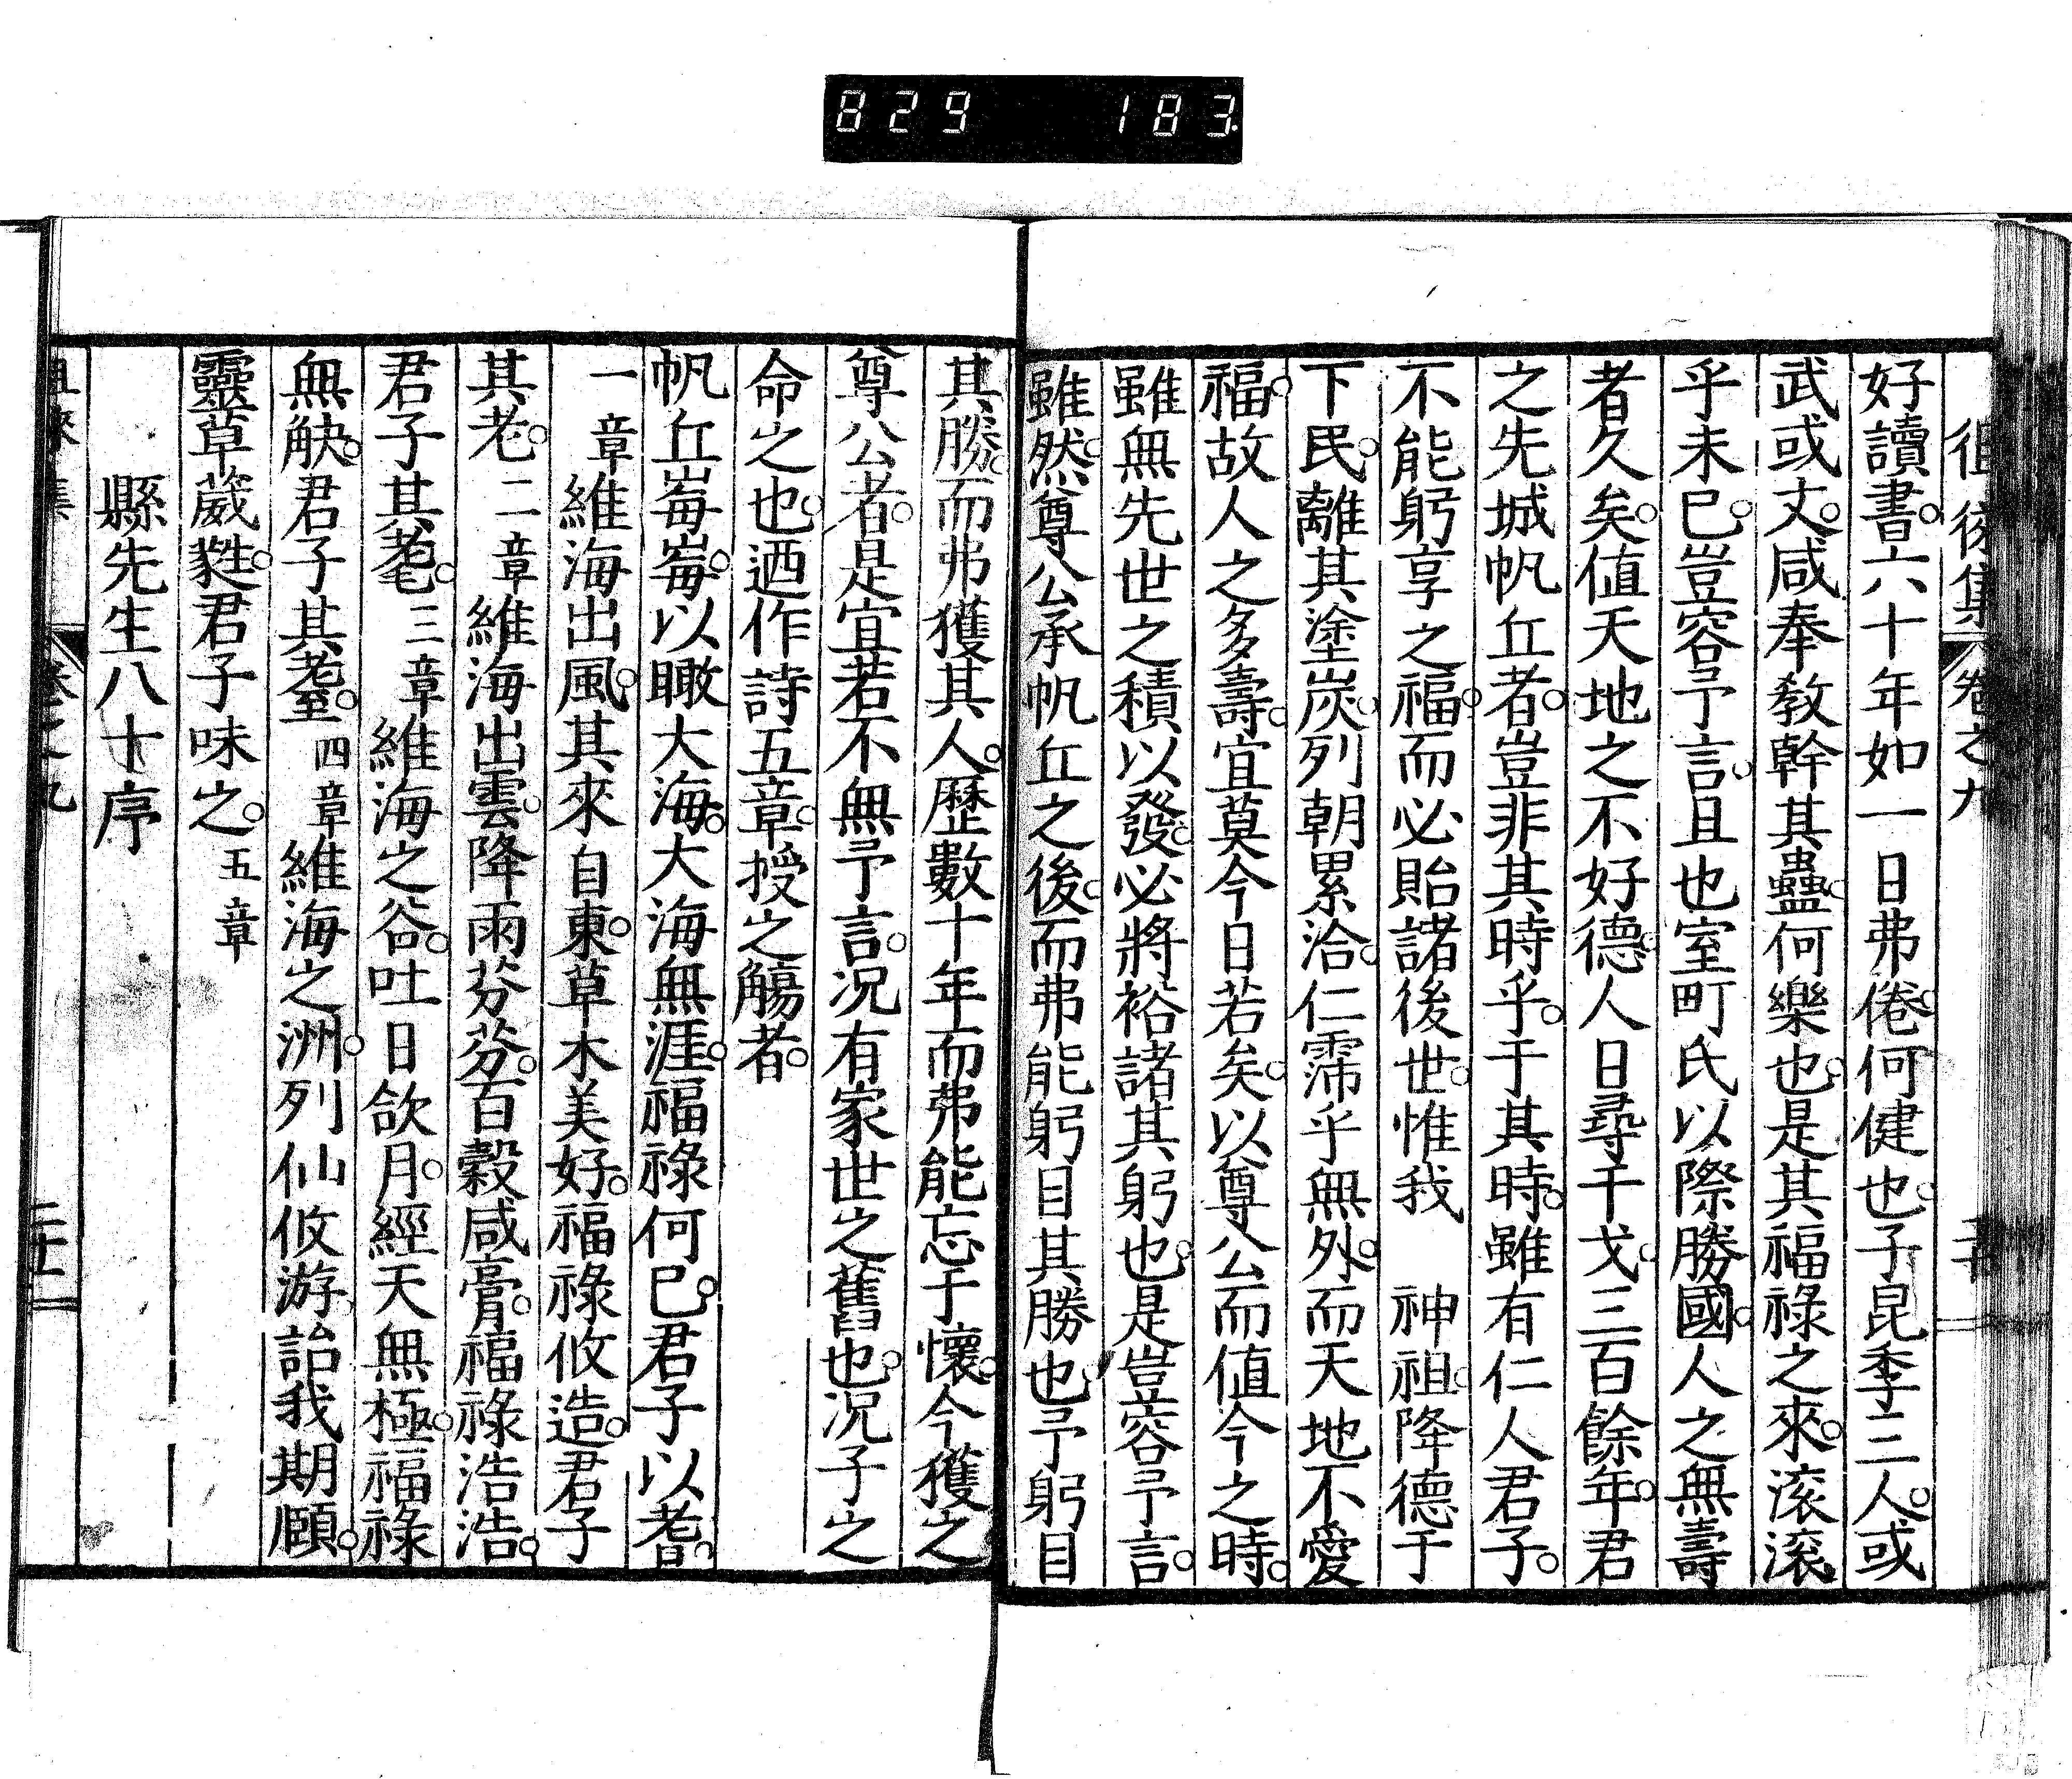 829 183.
徂徠集 卷之九
好讀書。六十年如一日弗倦。何健也。子昆季三人。或
武或文。咸奉教幹其蠱。何樂也。是其福祿之來。滚滚
乎未已。豈容予言。且也室町氏以際勝國。人之無壽
者久矣。値天地之不好德。人日尋干戈。三百餘年。君
之先城帆丘者。豈非其時乎。于其時。雖有仁人君子。
不能躬享之福。而必貽諸後世。惟我 神祖。降德于
下民。離其塗炭。列朝累洽。仁霈乎無外。而天地不愛
福。故人之多壽。宜莫今日若矣。以尊公而値今之時。
雖無先世之積以發。必將裕諸其躬也。是豈容予言。
雖然。尊公承帆丘之後。而弗能躬目其勝也。予躬目
其勝。而弗獲其人。歷數十年而弗能忘于懷。今獲之
尊公者。是宜若不無予言。況有家世之舊也。況子之
命之也。迺作詩五章。授之觴者。
帆丘崙崙。以瞰大海。大海無涯。福祿何已。君子以耆。
一章維海出風。其來自東。草木美好。福祿攸造。君子
其老。二章維海出雲。降雨芬芬。百穀咸膏。福祿浩浩。
君子其耄。三章維海之谷。吐日欱月。經天無極。福祿
無觖。君子其耋。四章維海之洲。列仙攸游。詒我期頤。
靈草葳蕤。君子味之。五章
縣先生八十序
徂徠集 卷之九 二十一